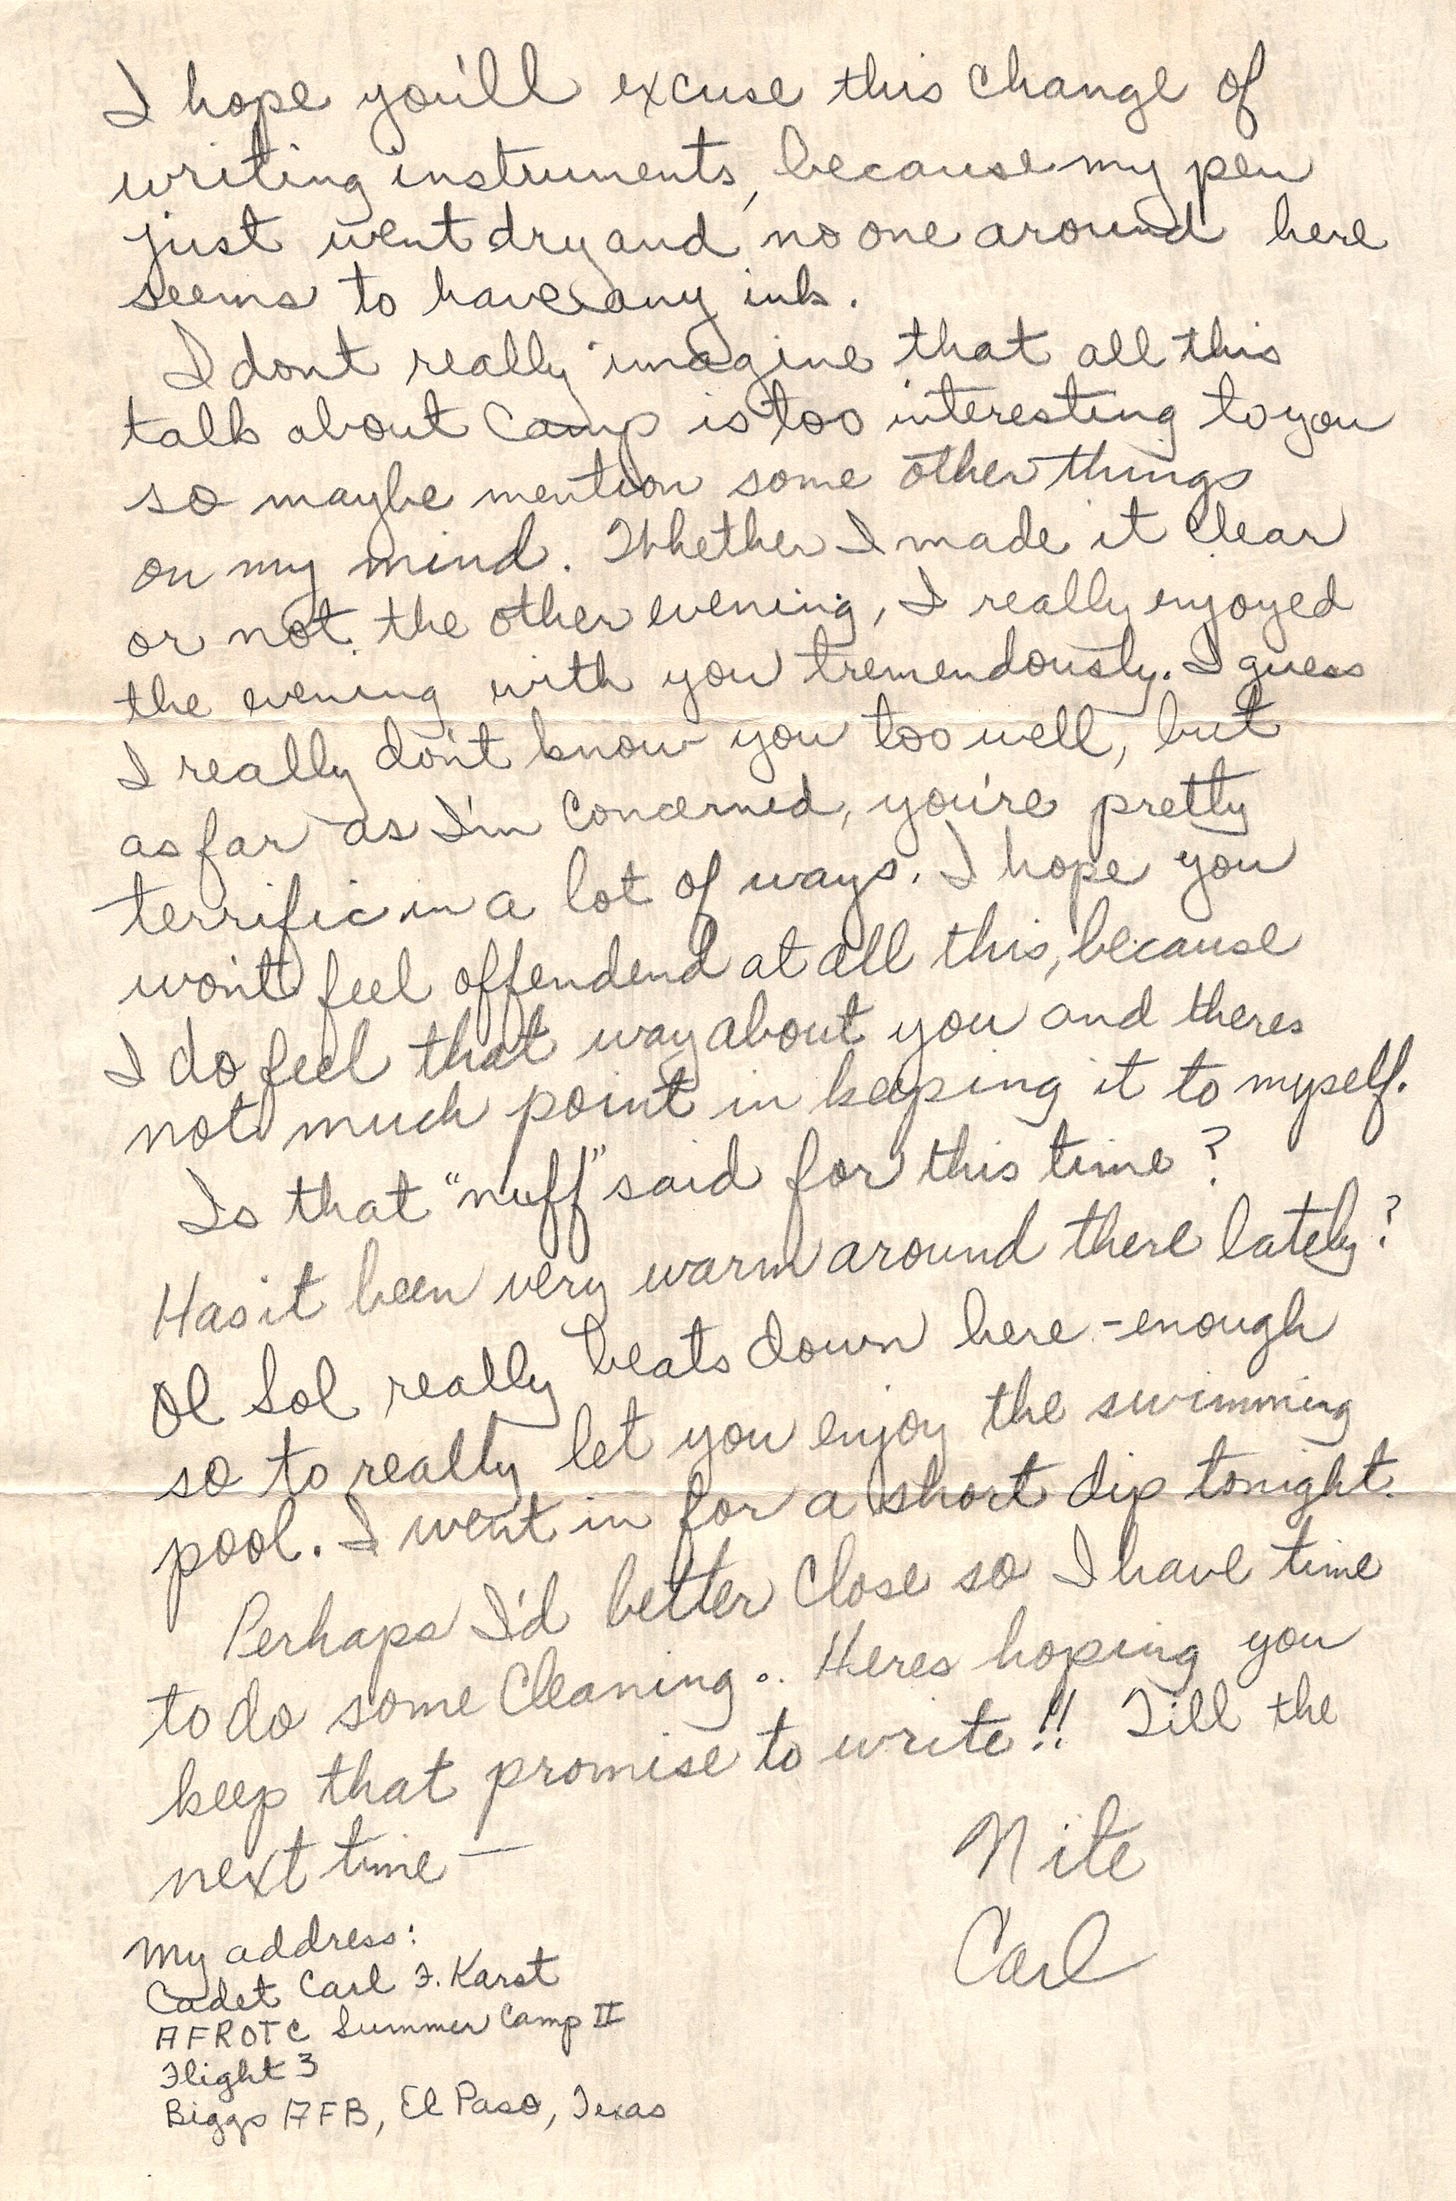 I hope you'll excuse this change of
writing instruments, because my pen
just went dry and no one around here
seems to have any ink.
I dont really imagine that all this
talk about Camp is too interesting to you
so maybe mention some other things
on my mind. Whether I made it clear
or not the other evening, I really enjoyed
the evening with you tremendously. I guess
I really don't know you too well, but
as far as I'm concerned, you're pretty
terrific in a lot of ways. I hope you
won't feel offendend at all this, because
I do feel that way about you and theres
not much point in keeping it to myself.
Is that "nuff" said for this time?
Has it been very warm around there lately?
Ol Sol really beats down here - enough
so to really let you enjoy the swimming
pool. I went in for a short dip tonight.
Perhaps I'd better close so I have time
to do some Cleaning.. Heres hoping you
keep that promise to write!! Till the
next time —
Nite
Carl
My address:
Cadet Carl F. Karst
AFROTC Summer Camp II
Flight 3
Biggs AFB, El Paso, Texas